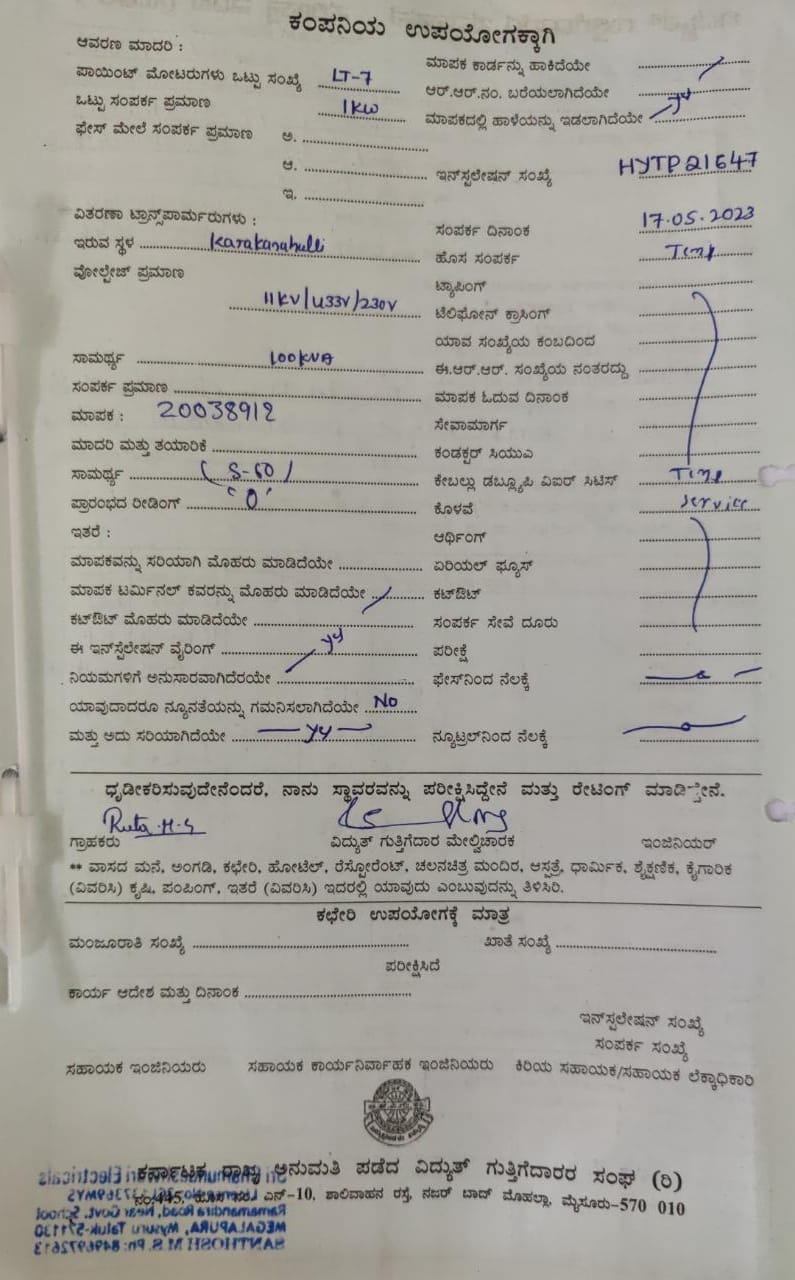 ಕಂಪನಿಯ ಉಪಯೋಗಕ್ಕಾಗಿ
ಆವರಣ ಮಾದರಿ :
ಪಾಯಿಂಟ್ ಮೋಟರುಗಳು ಒಟ್ಟು ಸಂಖ್ಯೆ LT-7
ಒಟ್ಟು ಸಂಪರ್ಕ ಪ್ರಮಾಣ 1KW
ಫೇಸ್ ಮೇಲೆ ಸಂಪರ್ಕ ಪ್ರಮಾಣ ಅ.
ಆ.
ಇ.
ವಿತರಣಾ ಟ್ರಾನ್ಸ್‌ಪಾರ್ಮರುಗಳು :
ಇರುವ ಸ್ಥಳ Karakanahulli
ವೋಲ್ಟೇಜ್ ಪ್ರಮಾಣ
11KV/433V/230V
ಸಾಮರ್ಥ್ಯ 100KVA
ಸಂಪರ್ಕ ಪ್ರಮಾಣ
ಮಾಪಕ : 20038912
ಮಾದರಿ ಮತ್ತು ತಯಾರಿಕೆ
ಸಾಮರ್ಥ್ಯ (5-60)
ಪ್ರಾರಂಭದ ರೀಡಿಂಗ್ "0"
ಇತರೆ :
ಮಾಪಕವನ್ನು ಸರಿಯಾಗಿ ಮೊಹರು ಮಾಡಿದೆಯೇ
ಮಾಪಕ ಟರ್ಮಿನಲ್ ಕವರನ್ನು ಮೊಹರು ಮಾಡಿದೆಯೇ
ಕಟ್‌ಔಟ್ ಮೊಹರು ಮಾಡಿದೆಯೇ
ಈ ಇನ್‌ಸ್ಟಲೇಷನ್ ವೈರಿಂಗ್
ನಿಯಮಗಳಿಗೆ ಅನುಸಾರವಾಗಿದೆರಯೇ
ಯಾವುದಾದರೂ ನ್ಯೂನತೆಯನ್ನು ಗಮನಿಸಲಾಗಿದೆಯೇ No
ಮತ್ತು ಅದು ಸರಿಯಾಗಿದೆಯೇ
ಮಾಪಕ ಕಾರ್ಡನ್ನು ಹಾಕಿದೆಯೇ
ಆರ್.ಆರ್.ನಂ. ಬರೆಯಲಾಗಿದೆಯೇ
ಮಾಪಕದಲ್ಲಿ ಹಾಳೆಯನ್ನು ಇಡಲಾಗಿದೆಯೇ
ಇನ್‌ಸ್ಟಲೇಷನ್ ಸಂಖ್ಯೆ HYTP21647
ಸಂಪರ್ಕ ದಿನಾಂಕ 17.05.2023
ಹೊಸ ಸಂಪರ್ಕ Temp
ಟ್ಯಾಪಿಂಗ್
ಟೆಲಿಫೋನ್ ಕ್ರಾಸಿಂಗ್
ಯಾವ ಸಂಖ್ಯೆಯ ಕಂಬದಿಂದ
ಈ.ಆರ್.ಆರ್. ಸಂಖ್ಯೆಯ ನಂತರದ್ದು
ಮಾಪಕ ಓದುವ ದಿನಾಂಕ
ಸೇವಾಮಾರ್ಗ
ಕಂಡಕ್ಟರ್ ಸಿಯುಎ
ಕೇಬಲ್ಲು ಡಬ್ಲ್ಯೂಪಿ ವಿಐರ್ ಸಿಟಿಸ್ Temp
ಕೊಳವೆ Service
ಆರ್ಥಿಂಗ್
ಏರಿಯಲ್ ಫ್ಯೂಸ್
ಕಟ್‌ಔಟ್
ಸಂಪರ್ಕ ಸೇವೆ ದೂರು
ಪರೀಕ್ಷೆ
ಫೇಸ್‌ನಿಂದ ನೆಲಕ್ಕೆ
ನ್ಯೂಟ್ರಲ್‌ನಿಂದ ನೆಲಕ್ಕೆ
ಧೃಡೀಕರಿಸುವುದೇನೆಂದರೆ, ನಾನು ಸ್ಥಾವರವನ್ನು ಪರೀಕ್ಷಿಸಿದ್ದೇನೆ ಮತ್ತು ರೇಟಿಂಗ್
Ruta.H.S
ಗ್ರಾಹಕರು ವಿದ್ಯುತ್ ಗುತ್ತಿಗೆದಾರ ಮೇಲ್ವಿಚಾರಕ ಇಂಜಿನಿಯರ್
** ವಾಸದ ಮನೆ, ಅಂಗಡಿ, ಕಛೇರಿ, ಹೋಟೆಲ್, ರೆಸ್ಟೋರೆಂಟ್, ಚಲನಚಿತ್ರ ಮಂದಿರ, ಆಸ್ಪತ್ರೆ, ಧಾರ್ಮಿಕ, ಶೈಕ್ಷಣಿಕ, ಕೈಗಾರಿಕ
(ವಿವರಿಸಿ) ಕೃಷಿ, ಪಂಪಿಂಗ್, ಇತರೆ (ವಿವರಿಸಿ) ಇದರಲ್ಲಿ ಯಾವುದು ಎಂಬುವುದನ್ನು ತಿಳಿಸಿರಿ.
ಕಛೇರಿ ಉಪಯೋಗಕ್ಕೆ ಮಾತ್ರ
ಮಂಜೂರಾತಿ ಸಂಖ್ಯೆ ಖಾತೆ ಸಂಖ್ಯೆ
ಪರೀಕ್ಷಿಸಿದೆ
ಕಾರ್ಯ ಆದೇಶ ಮತ್ತು ದಿನಾಂಕ
ಇನ್‌ಸ್ಟಲೇಷನ್ ಸಂಖ್ಯೆ
ಸಂಪರ್ಕ ಸಂಖ್ಯೆ
ಸಹಾಯಕ ಇಂಜಿನಿಯರು ಸಹಾಯಕ ಕಾರ್ಯನಿರ್ವಾಹಕ ಇಂಜಿನಿಯರು ಕಿರಿಯ ಸಹಾಯಕ/ಸಹಾಯಕ ಲೆಕ್ಕಾಧಿಕಾರಿ
ಕರ್ನಾಟಕ ರಾಜ್ಯ ಅನುಮತಿ ಪಡೆದ ವಿದ್ಯುತ್ ಗುತ್ತಿಗೆದಾರರ ಸಂಘ (ರಿ)
ಎನ್-10, ಶಾಲಿವಾಹನ ರಸ್ತೆ, ನಜರ್ ಬಾದ್ ಮೊಹಲ್ಲಾ, ಮೈಸೂರು-570 010
Ramamandira Road, Near Govt. School
MEGALAPURA, Mysuru Taluk-571130
SANTHOSH M.S. Ph: 8496972613